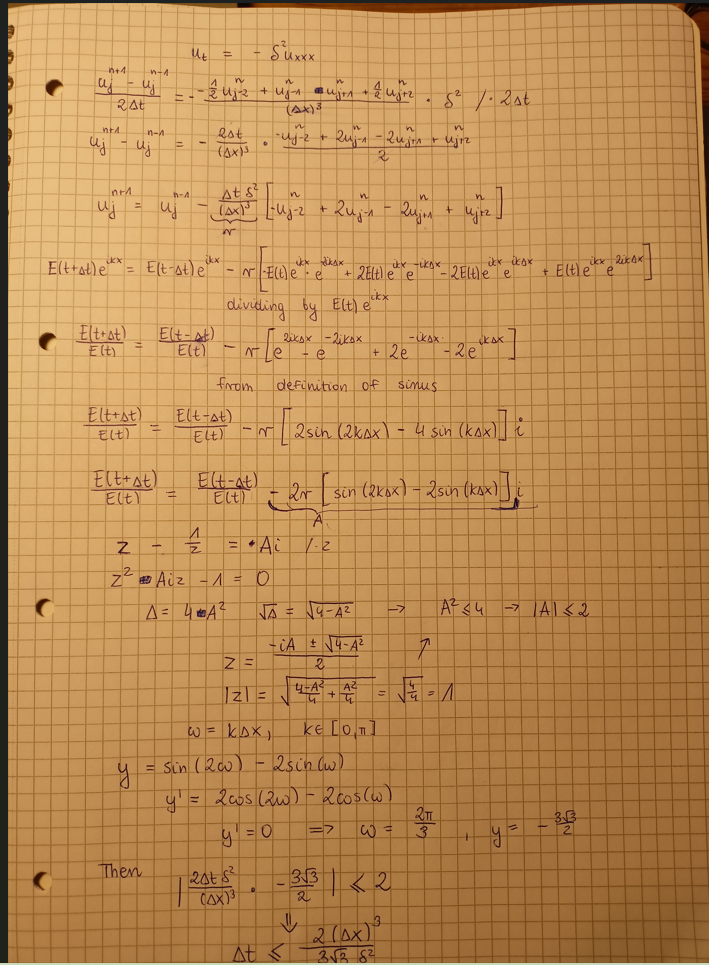 u_t = - δ² u_xxx
(u_j^{n+1} - u_j^{n-1}) / 2Δt = - (-1/2 u_{j-2}^n + u_{j-1}^n - u_{j+1}^n + 1/2 u_{j+2}^n) / (Δx)³ · δ² /· 2Δt
u_j^{n+1} - u_j^{n-1} = - 2Δt / (Δx)³ · (-u_{j-2}^n + 2u_{j-1}^n - 2u_{j+1}^n + u_{j+2}^n) / 2
u_j^{n+1} = u_j^{n-1} - Δt δ² / (Δx)³ [-u_{j-2}^n + 2u_{j-1}^n - 2u_{j+1}^n + u_{j+2}^n]
r
E(t+Δt)e^{ikx} = E(t-Δt)e^{ikx} - r [-E(t)e^{ikx} · e^{-2ikΔx} + 2E(t)e^{ikx} e^{-ikΔx} - 2E(t)e^{ikx} e^{ikΔx} + E(t)e^{ikx} e^{2ikΔx}]
dividing by E(t) e^{ikx}
E(t+Δt) / E(t) = E(t-Δt) / E(t) - r [e^{2ikΔx} - e^{-2ikΔx} + 2e^{-ikΔx} - 2e^{ikΔx}]
from definition of sinus
E(t+Δt) / E(t) = E(t-Δt) / E(t) - r [2sin(2kΔx) - 4 sin(kΔx)] i
E(t+Δt) / E(t) = E(t-Δt) / E(t) - 2r [sin(2kΔx) - 2sin(kΔx)] i
A
z - 1/z = -Ai /·z
z² - Aiz - 1 = 0
Δ = 4 - A² √Δ = √(4-A²) → A² ≤ 4 → |A| ≤ 2
z = (-iA ± √(4-A²)) / 2 ↗
|z| = √((4-A²)/4 + A²/4) = √(4/4) = 1
ω = kΔx, k∈[0,π]
y = sin(2ω) - 2sin(ω)
y' = 2cos(2ω) - 2cos(ω)
y' = 0 => ω = 2π/3 , y = - 3√3/2
Then
| 2Δt δ² / (Δx)³ · - 3√3/2 | ≤ 2
⇓
Δt ≤ 2(Δx)³ / 3√3 δ²